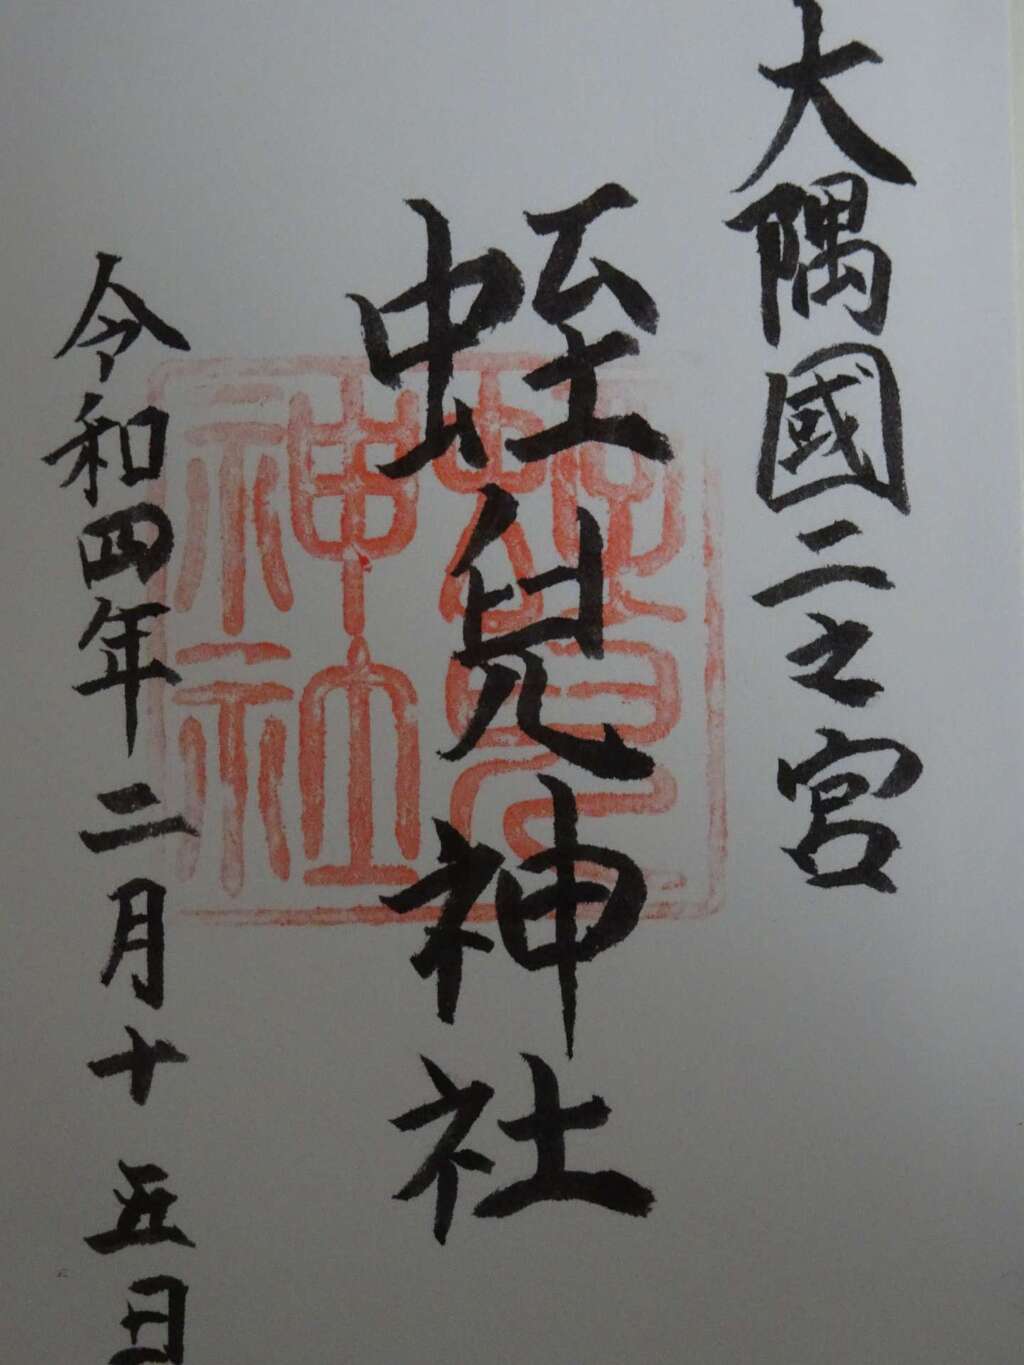 大隅國二之宮
蛭兒神社
蛭兒神社
令和四年二月十五日